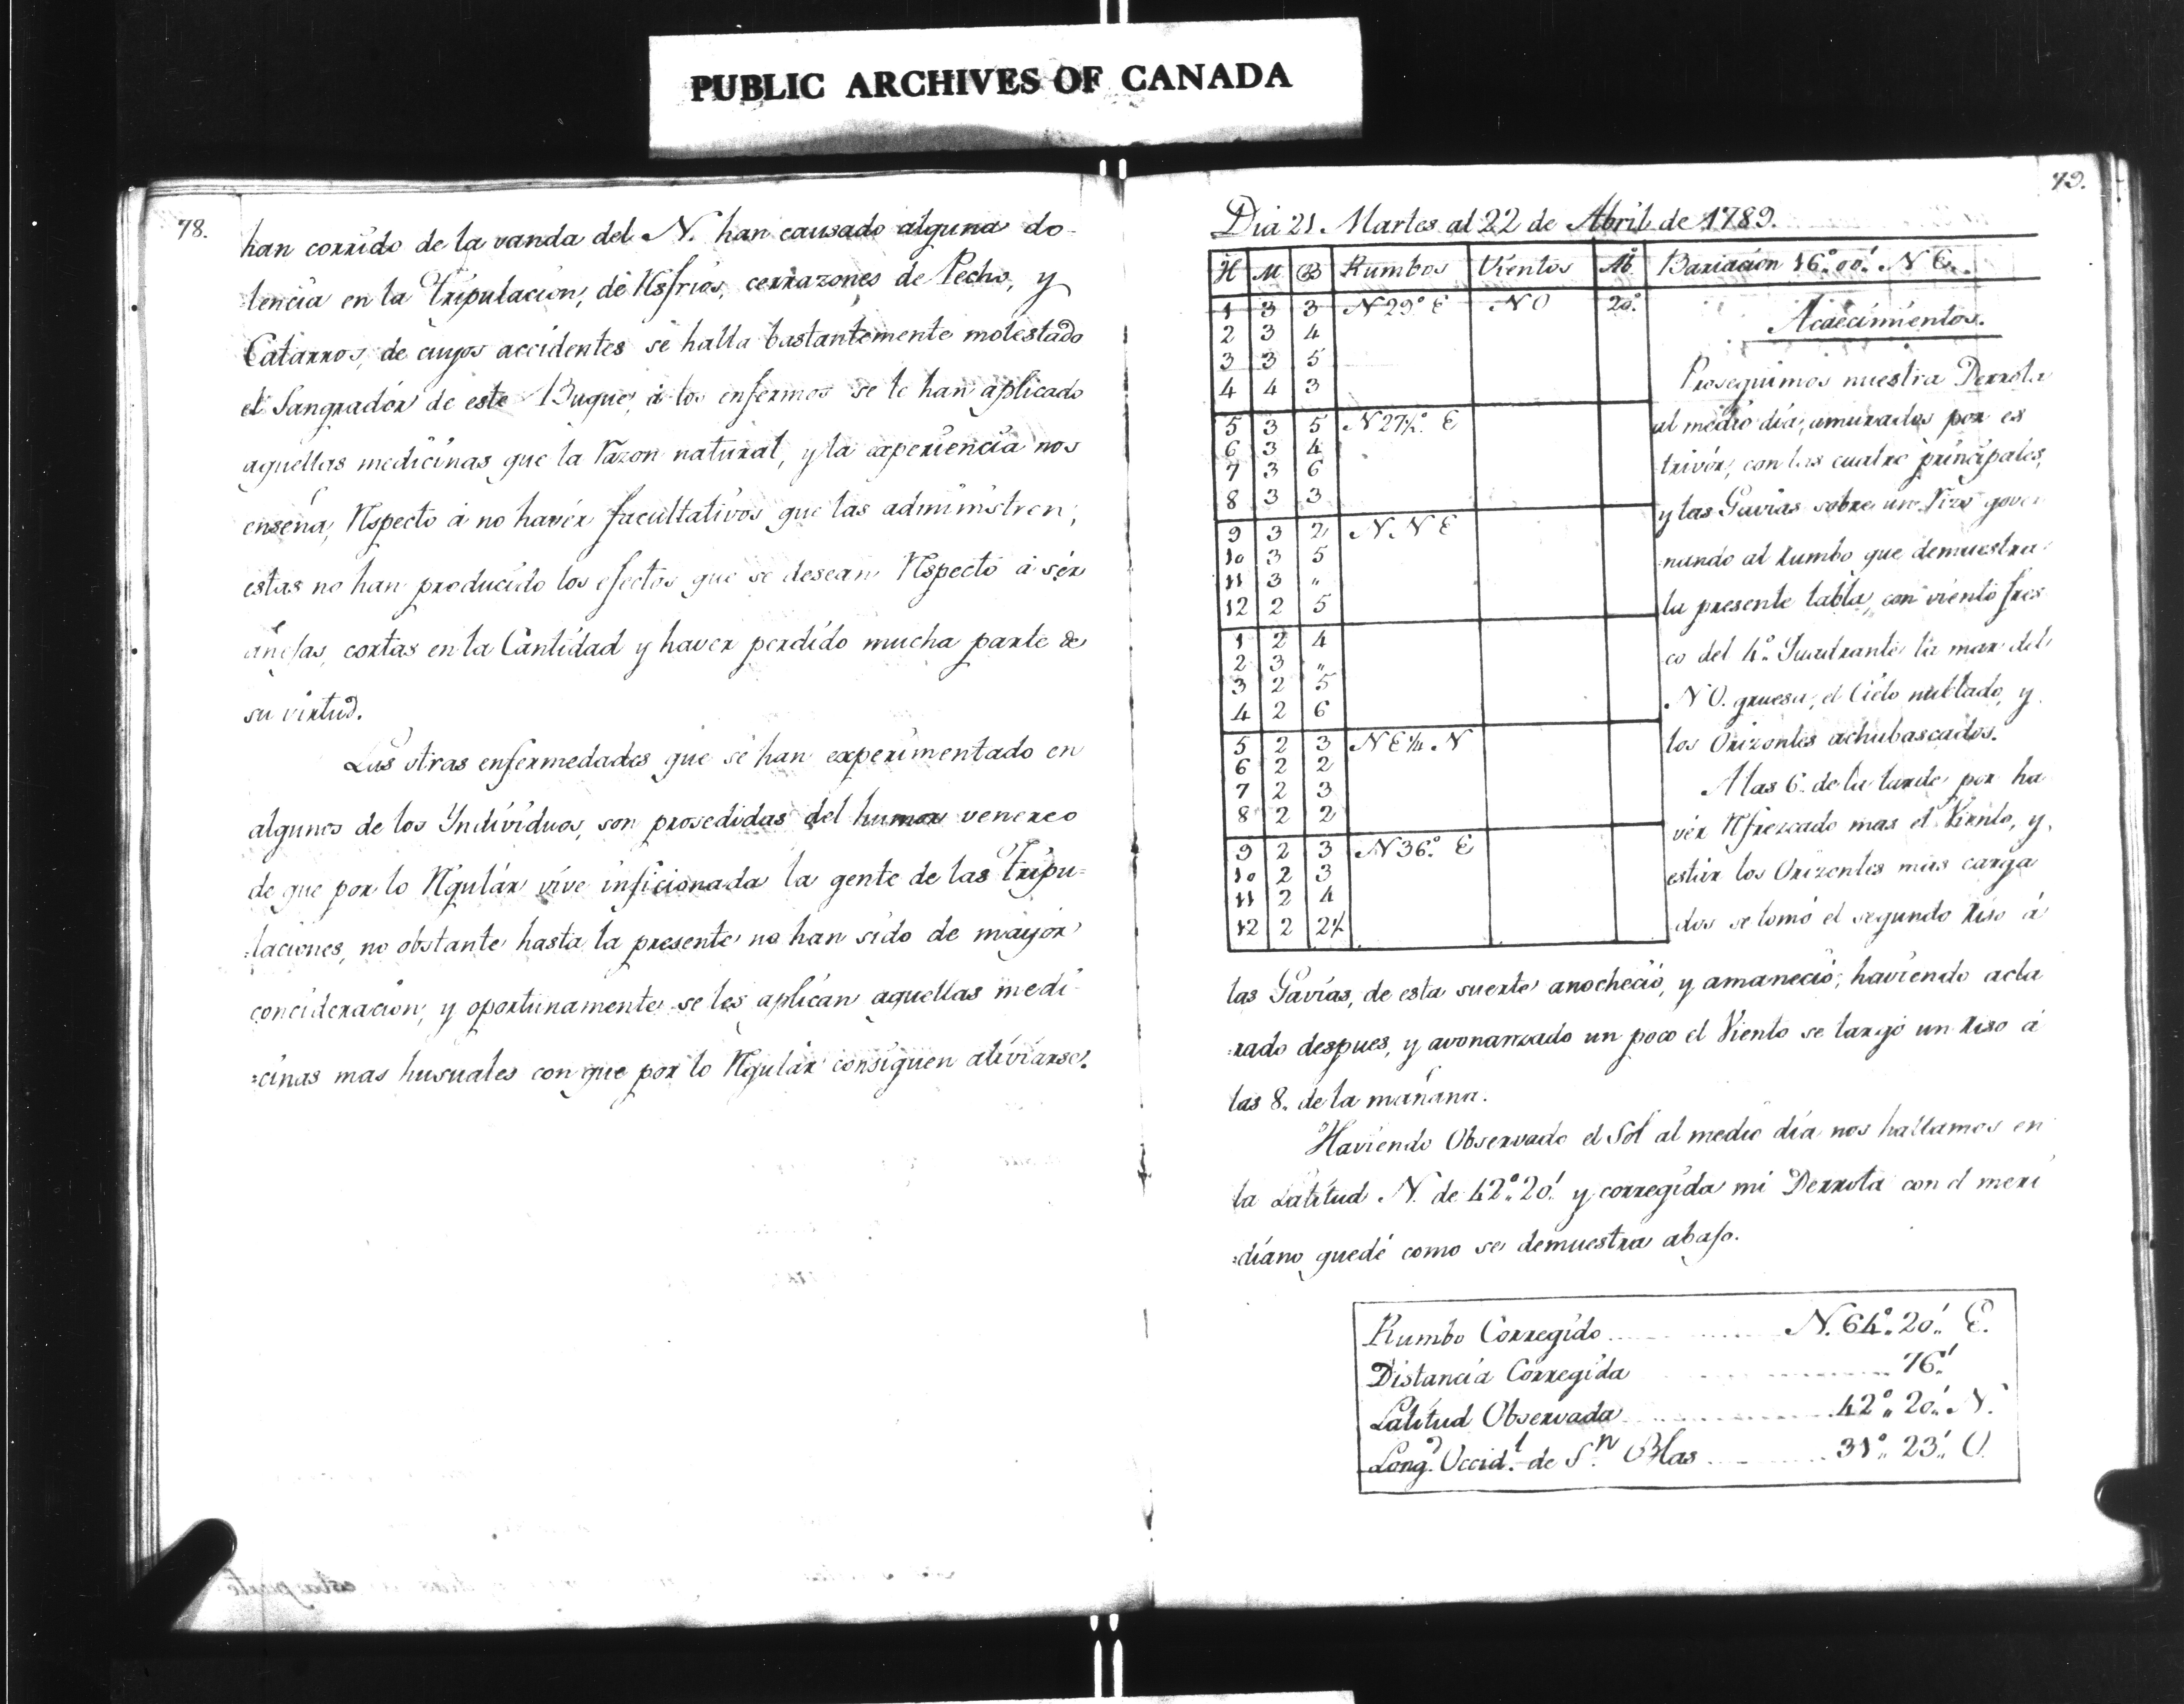 PUBLIC ARCHIVES OF CANADA
78.
han corrido de la vanda del N. han causado alguna do-
lencia en la Tripulacion, de Resfrios, cerrazones de Pecho, y
Catarros, de cuyos accidentes se halla bastantemente molestado
el Sangrador de este Buque, á los enfermos se le han aplicado
aquellas medicinas que la razon natural, y la experiencia nos
enseña, Respecto á no havér facultativos que las administren;
estas no han producido los efectos que se desean Respecto á sér
añejas, cortas en la Cantidad y haver perdido mucha parte de
su virtud.
Las otras enfermedades que se han experimentado en
algunos de los Yndividuos, son prosedidas del humor venereo
de que por lo Regulár vive inficionada la gente de las Tripu=
=laciones, no obstante hasta la presente no han sido de mayór
concideracion, y oportunamente se les aplican aquellas medi-
=cinas mas husuales con que por lo Regulár consiguen aliviarse.
79.
Dia 21. Martes al 22 de Abril de 1789.
H M B Rumbos Vientos Ab. Bariacion 16° 00' N E.
1 3 3 N 29° E NO 20°
2 3 4
3 3 5
4 4 3
5 3 5 N 27½° E
6 3 4
7 3 6
8 3 3
9 3 2 N. N E
10 3 5
11 3 "
12 2 5
1 2 4
2 3 "
3 2 5
4 2 6
5 2 3 N E ¼ N
6 2 2
7 2 3
8 2 2
9 2 3 N 36° E
10 2 3
11 2 4
12 2 2½
Acaecimientos.
Proseguimos nuestra Derrota
al medio dia, amurados por es
trivór, con las cuatro principales,
y las Gavias sobre un Rizo gover
nando al Rumbo que demuestra
la presente tabla, con viento fres
co del 4° Quadrante la mar del
N O. gruesa, el Cielo nublado, y
los Orizontes achubascados.
A las 6. de la tarde por ha
vér Refrezcado mas el Viento, y
estár los Orizontes mas carga
dos se tomó el segundo Riso á
las Gavias, de esta suerte anocheció, y amaneció; haviendo acla
=rado despues, y avonanzado un poco el Viento se largó un Riso á
las 8. de la mañana.
Haviendo Observado el Sol al medio dia nos hallamos en
la Latitud N. de 42° 20' y corregida mi Derrota con el meri
=diano quedé como se demuestra abajo.
Rumbo Corregido N. 64° 20' E.
Distancia Corregida 76'
Latitud Observada 42° 20' N.
Longd. Occidl. de Sn. Blas 31° 23' O.